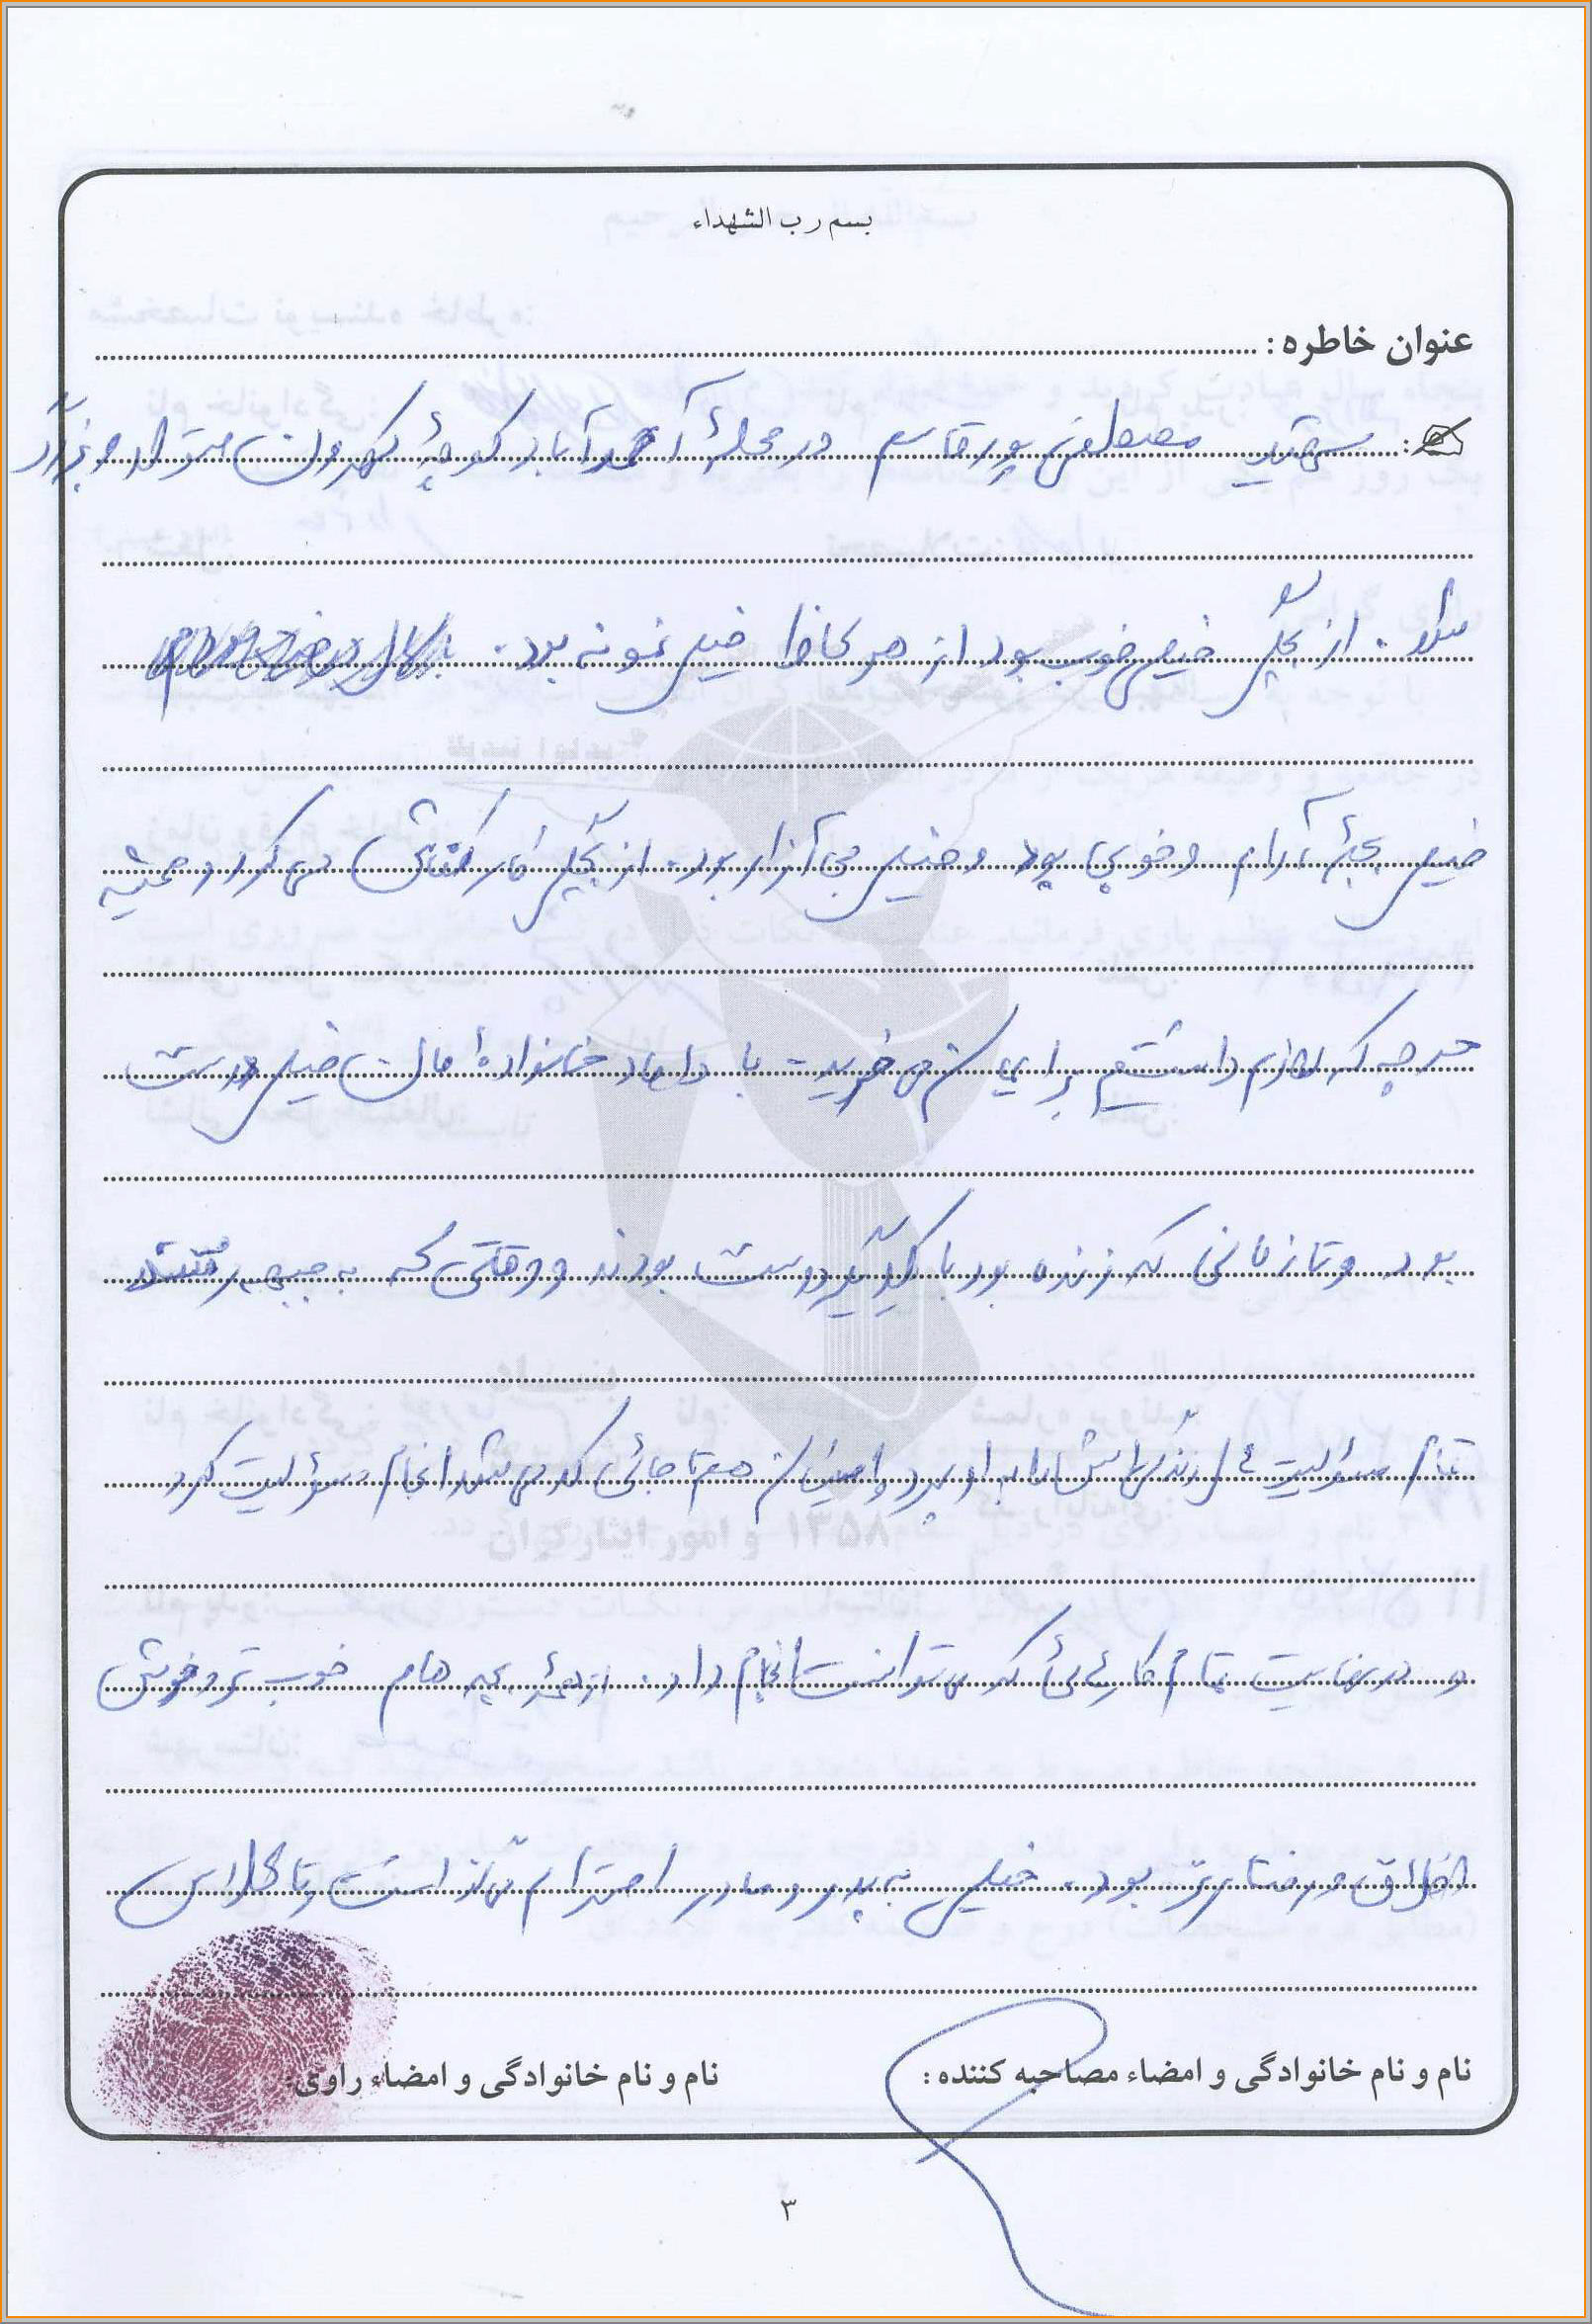 بسم رب الشهداء
عنوان خاطره :
شهید مصطفی پورقاسم در محلهٔ آحمدآباد کوچهٔ متولد و بزرگ
شد . از بچگی خیلی خوب بود از هر لحاظ خیلی نمونه بود .
خیلی بچهٔ آرام و خوبی بود و خیلی بی آزار بود . از بچگی کار کفاشی می کرد و همیشه
هر چه که لازم داشتیم برای من می خرید با داماد خانواده مان خیلی دوست
بود و تا زمانی که زنده بود با یکدیگر دوست بودند و وقتی که به جبهه رفتند
تمام مسئولیت فرزندهایش را به او سپرد و ایشان هم تا جائی که می شد انجام مسؤلیت کرد
و در نهایت تمام کارهایی که می توانست انجام داد . از همهٔ بچه هام خوب تر و خوش
اخلاق و رفتارتر بود . خیلی به پدر و مادر احترام می گذاشت و تا کلاس
نام و نام خانوادگی و امضاء مصاحبه کننده :
نام و نام خانوادگی و امضاء راوی:
۳